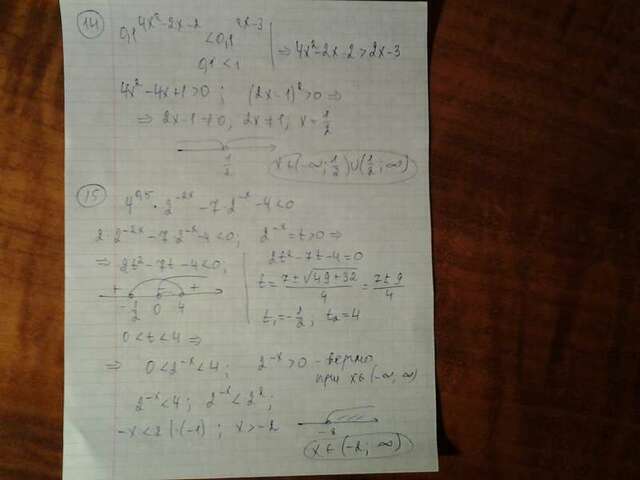 14
0,1^(4x²-2x-2) < 0,1^(2x-3)
0,1 < 1
⇒ 4x²-2x-2 > 2x-3
4x²-4x+1>0 ; (2x-1)²>0 ⇒
⇒ 2x-1≠0, 2x≠1, x=1/2
1/2
x∈(-∞; 1/2)∪(1/2; ∞)
15
4^0,5 · 2^(-2x) - 7·2^(-x) - 4<0
2·2^(-2x) - 7·2^(-x) - 4<0; 2^(-x)=t>0 ⇒
⇒ 2t²-7t-4<0;
2t²-7t-4=0
t = (7±√(49+32))/4 = (7±9)/4
t₁=-1/2, t₂=4
+ - +
-1/2 0 4
0<t<4 ⇒
⇒ 0<2^(-x)<4; 2^(-x)>0 - верно
при x∈(-∞, ∞)
2^(-x)<4; 2^(-x)<2²;
-x<2 |·(-1) ; x>-2
-2
x∈(-2; ∞)